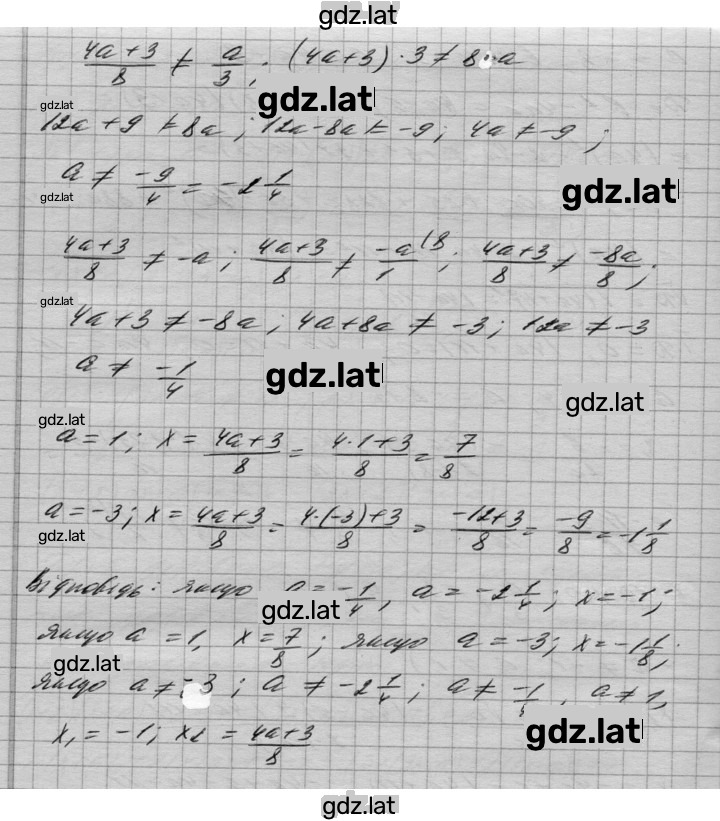 gdz.lat
(4a+3)/8 ≠ a/3; (4a+3)·3 ≠ 8·a
gdz.lat
gdz.lat
12a+9 ≠ 8a; 12a-8a ≠ -9; 4a ≠ -9;
a ≠ -9/4 = -2 1/4
gdz.lat
gdz.lat
(4a+3)/8 ≠ -a; (4a+3)/8 ≠ -a/1 (8; (4a+3)/8 ≠ -8a/8;
gdz.lat
4a+3 ≠ -8a; 4a+8a ≠ -3; 12a ≠ -3
a ≠ -1/4
gdz.lat
gdz.lat
gdz.lat
a=1; x = (4a+3)/8 = (4·1+3)/8 = 7/8
a=-3; x = (4a+3)/8 = (4·(-3)+3)/8 = (-12+3)/8 = -9/8 = -1 1/8
gdz.lat
Відповідь: якщо a = -1/4, a = -2 1/4; x = -1;
gdz.lat
якщо a = 1, x = 7/8; якщо a = -3; x = -1 1/8;
gdz.lat
якщо a ≠ -3; a ≠ -2 1/4; a ≠ -1/, a ≠ 1,
gdz.lat
x₁ = -1; x₂ = (4a+3)/8
gdz.lat